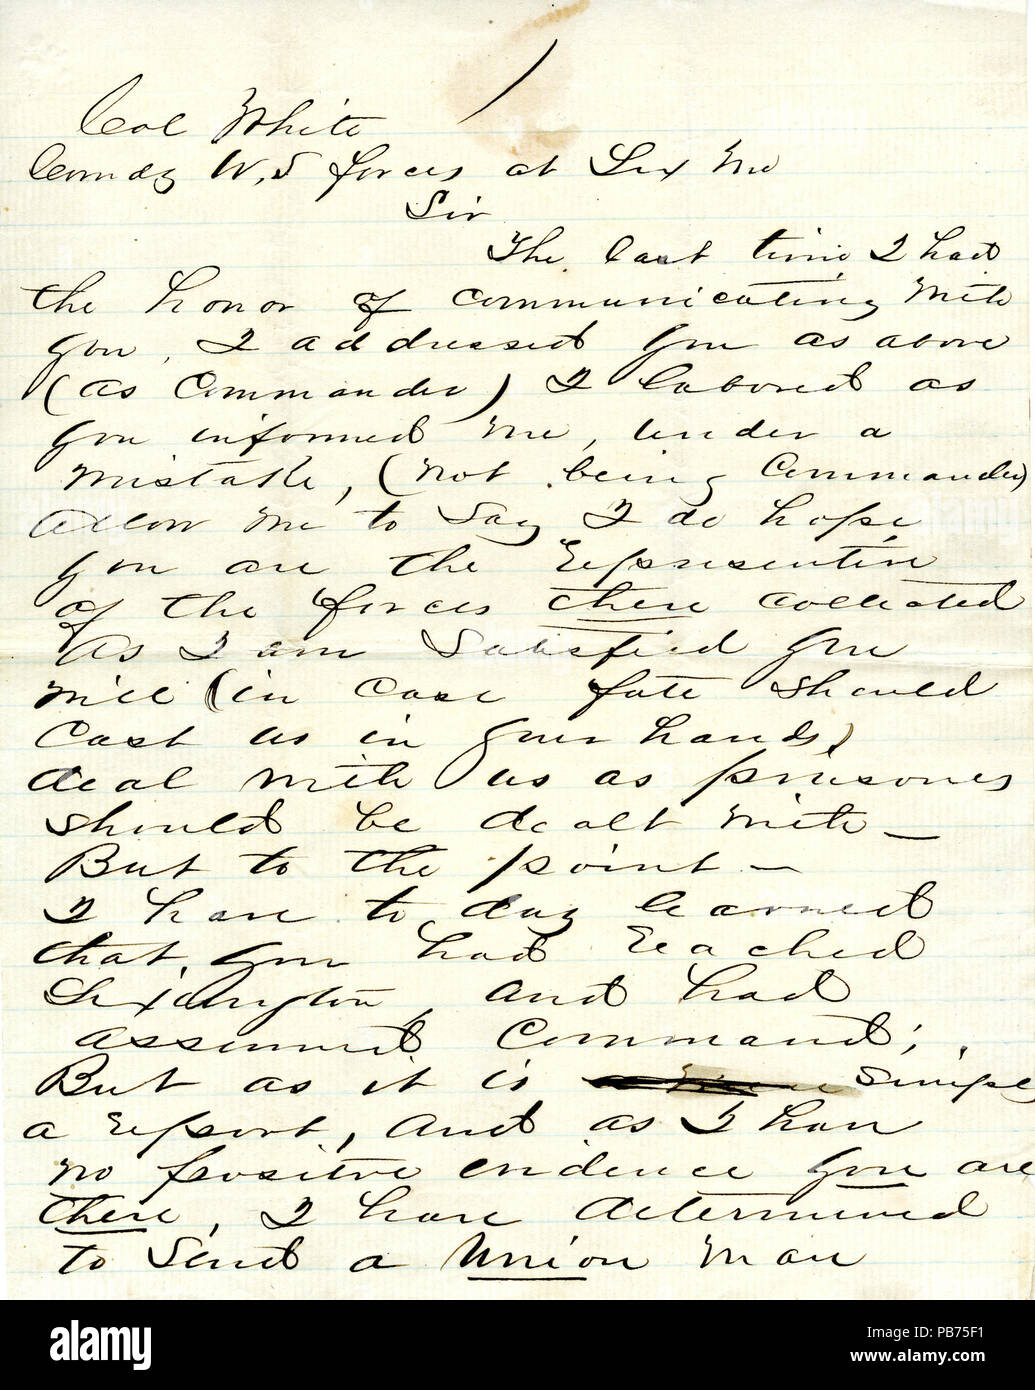 Col White
Comdg U,S forces at Lex Mo
Sir
The last time I had
the honor of communicating with
you, I addressed you as above
(as Commander) I labored as
you informed me, under a
mistake, (not being Commander)
allow me to say I do hope
you are the Representive
of the forces there collected
As I am Satisfied you
will (in case fate should
cast us in your hands)
deal with us as prisoners
should be dealt with —
But to the point —
I have to day learned
that you had Reached
Lexington, and had
assumed Command;
But as it is simply
a Report, and as I have
no positive evidence you are
there, I have determined
to Send a Union man
alamy
Image ID: PB75F1
www.alamy.com